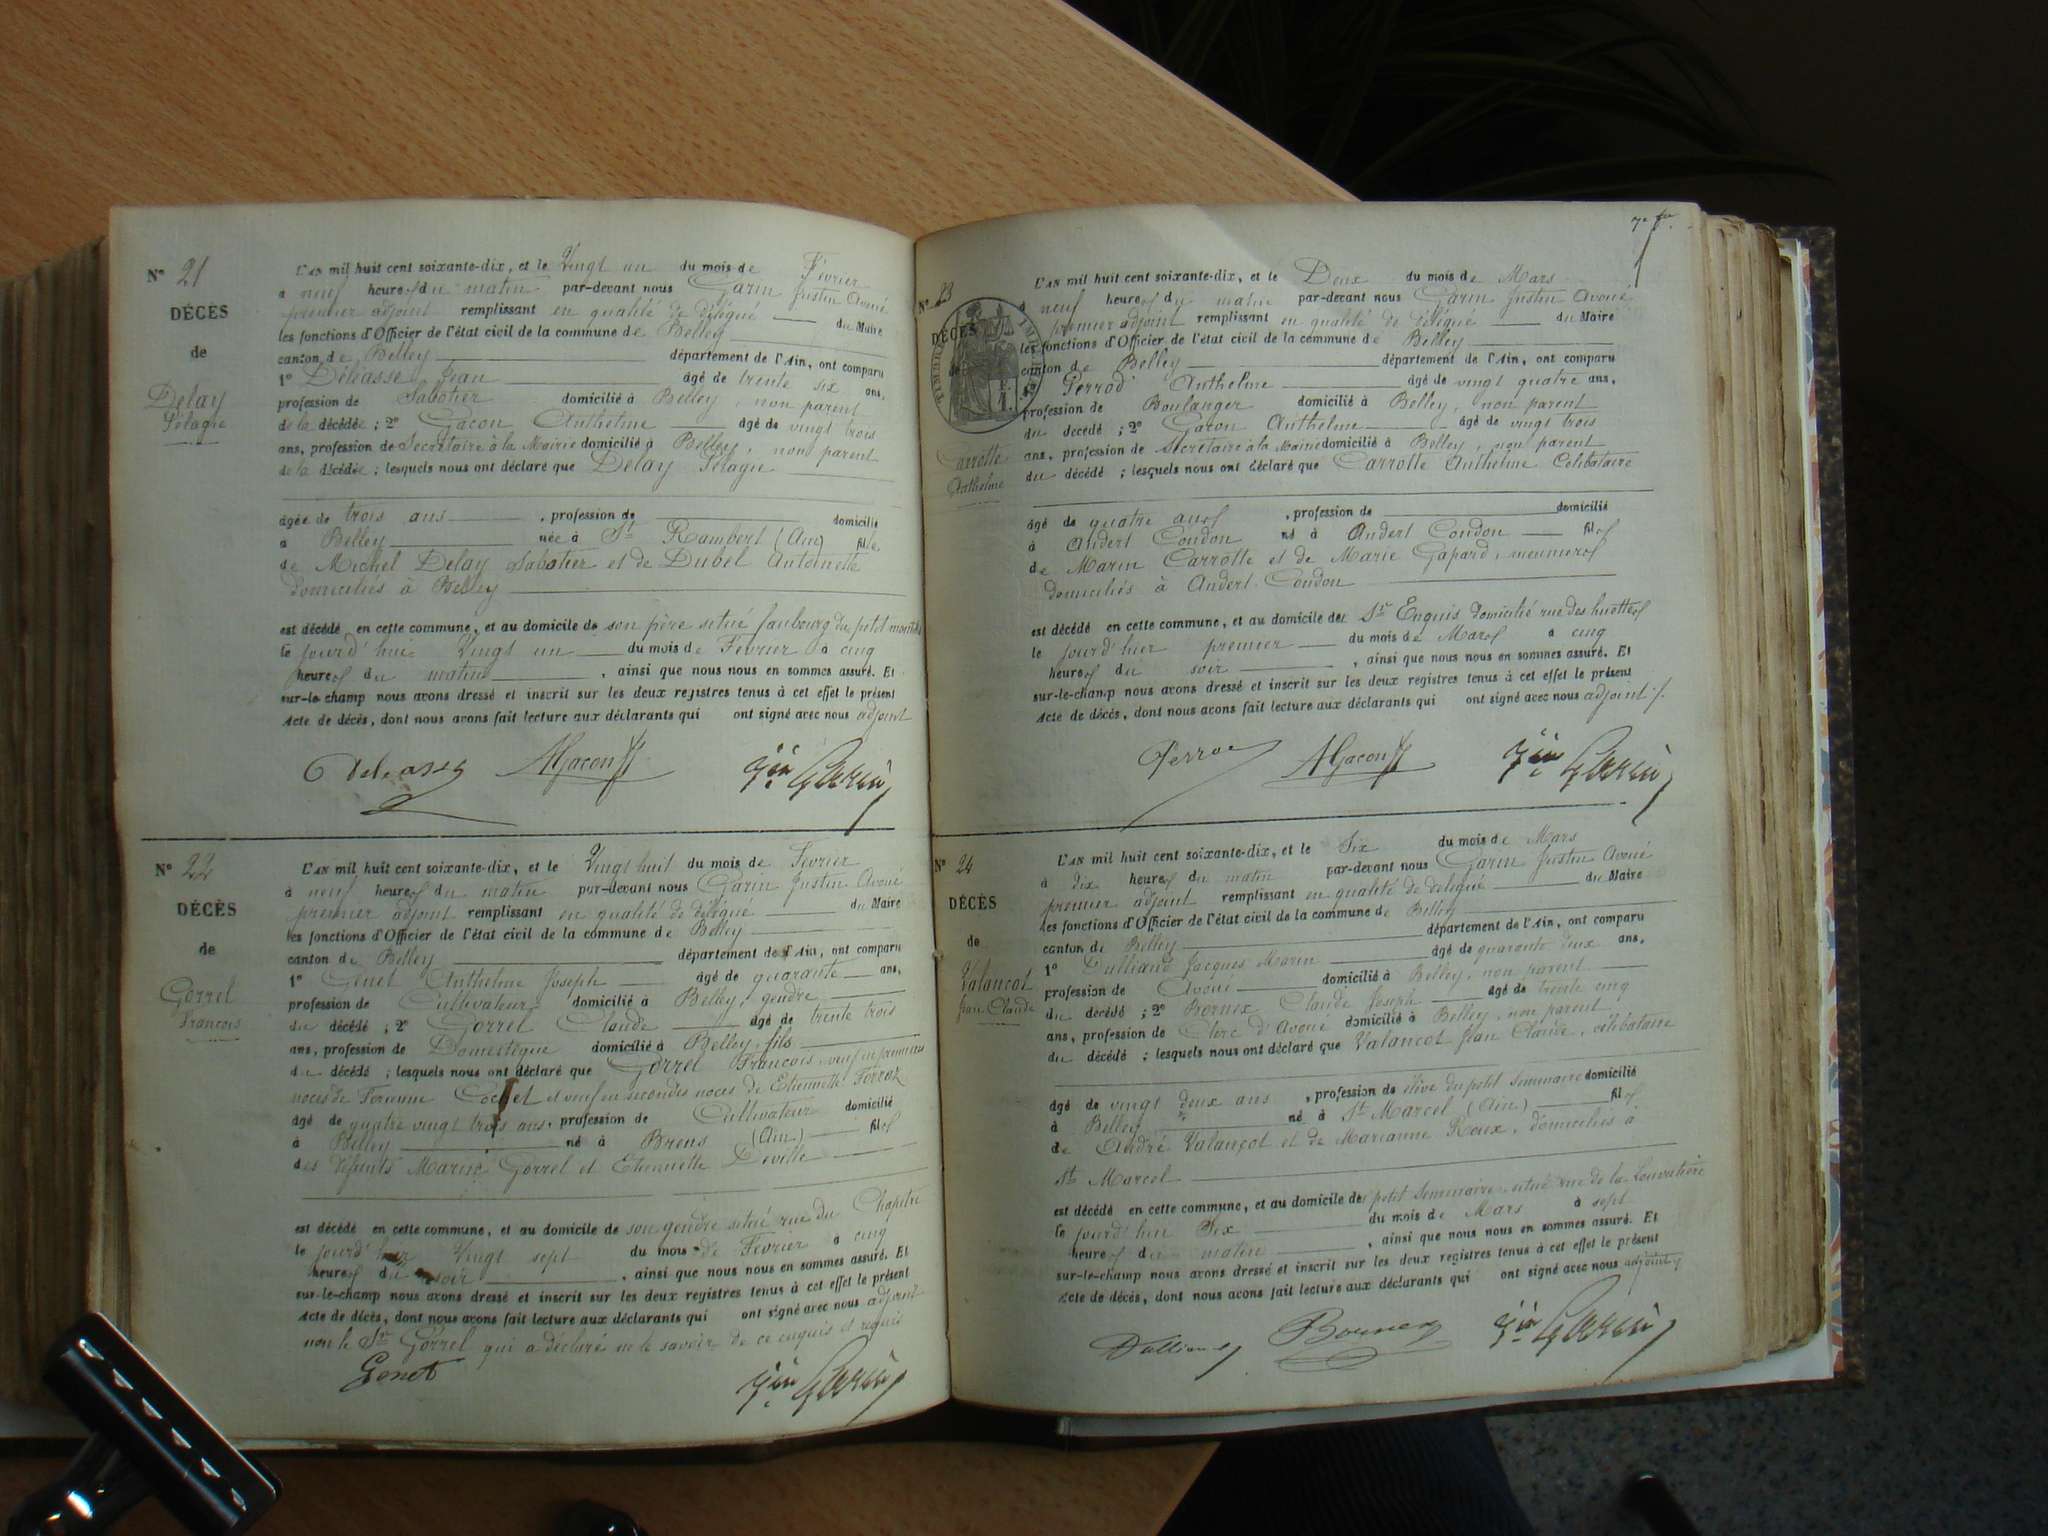 N° 21
DÉCÈS
de
Delay
Pélagie
L'AN mil huit cent soixante-dix, et le Vingt un du mois de Février
à neuf heures du matin par-devant nous Garin Justin Avoué
premier adjoint remplissant en qualité de délégué du Maire
les fonctions d'Officier de l'état civil de la commune de Belley
canton de Belley département de l'Ain, ont comparu
1° Déléasse Jean âgé de trente six ans,
profession de Sabotier domicilié à Belley non parent
de la décédée ; 2° Gacon Anthelme âgé de vingt trois
ans, profession de Secrétaire à la Mairie domicilié à Belley, non parent
de la décédée ; lesquels nous ont déclaré que Delay Pélagie
âgée de trois ans, profession de domicilié
à Belley née à St Rambert (Ain) fille
de Michel Delay Sabotier et de Dubel Antoinette
domiciliés à Belley
est décédé en cette commune, et au domicile de son père situé faubourg du petit
le jourd'hui Vingt un du mois de Février à cinq
heures du matin, ainsi que nous nous en sommes assuré. Et
sur-le-champ nous avons dressé et inscrit sur les deux registres tenus à cet effet le présent
Acte de décès, dont nous avons fait lecture aux déclarants qui ont signé avec nous adjoint
Deleasse AGacon Jin Garin
N° 22
DÉCÈS
de
Gorrel
François
L'AN mil huit cent soixante-dix, et le Vingt huit du mois de Février
à neuf heures du matin par-devant nous Garin Justin Avoué
premier adjoint remplissant en qualité de délégué du Maire
les fonctions d'Officier de l'état civil de la commune de Belley
canton de Belley département de l'Ain, ont comparu
1° Genet Anthelme Joseph âgé de quarante ans,
profession de Cultivateur domicilié à Belley, gendre
du décédé ; 2° Gorrel Claude âgé de trente trois
ans, profession de Domestique domicilié à Belley, fils
du décédé ; lesquels nous ont déclaré que Gorrel François veuf en premières
noces de Cochet et veuf en secondes noces de Etiennette
âgé de quatre vingt trois ans, profession de Cultivateur domicilié
à Belley né à Brens (Ain) fils
des défunts Marin Gorrel et Etiennette Deville
est décédé en cette commune, et au domicile de son gendre situé rue du Chapitre
le jourd'hier Vingt sept du mois de Février à cinq
heures du soir, ainsi que nous nous en sommes assuré. Et
sur-le-champ nous avons dressé et inscrit sur les deux registres tenus à cet effet le présent
Acte de décès, dont nous avons fait lecture aux déclarants qui ont signé avec nous adjoint
non le Sr Gorrel qui a déclaré ne le savoir de ce enquis et requis
Genet Jin Garin
7e
N° 23
DÉCÈS
de
Carrotte
Anthelme
L'AN mil huit cent soixante-dix, et le Deux du mois de Mars
à neuf heures du matin par-devant nous Garin Justin Avoué
premier adjoint remplissant en qualité de délégué du Maire
les fonctions d'Officier de l'état civil de la commune de Belley
canton de Belley département de l'Ain, ont comparu
1° Perrod Anthelme âgé de vingt quatre ans,
profession de Boulanger domicilié à Belley, non parent
du décédé ; 2° Gacon Anthelme âgé de vingt trois
ans, profession de Secrétaire à la Mairie domicilié à Belley, non parent
du décédé ; lesquels nous ont déclaré que Carrotte Anthelme Célibataire
âgé de quatre ans, profession de domicilié
à Andert Condon né à Andert Condon fils
de Marin Carrotte et de Marie Gapard, meuniers
domiciliés à Andert-Condon
est décédé en cette commune, et au domicile de Sr Enguis domicilié rue des huottes
le jourd'hier premier du mois de Mars à cinq
heures du soir, ainsi que nous nous en sommes assuré. Et
sur-le-champ nous avons dressé et inscrit sur les deux registres tenus à cet effet le présent
Acte de décès, dont nous avons fait lecture aux déclarants qui ont signé avec nous adjoint ./.
Perrod AGacon Jin Garin
N° 24
DÉCÈS
de
Valançot
Jean Claude
L'AN mil huit cent soixante-dix, et le Six du mois de Mars
à dix heures du matin par-devant nous Garin Justin Avoué
premier adjoint remplissant en qualité de délégué du Maire
les fonctions d'Officier de l'état civil de la commune de Belley
canton de Belley département de l'Ain, ont comparu
1° Dulliand Jacques Marin âgé de quarante deux ans,
profession de Avoué domicilié à Belley, non parent
du décédé ; 2° Bornex Claude Joseph âgé de trente cinq
ans, profession de Clerc d'Avoué domicilié à Belley, non parent
du décédé ; lesquels nous ont déclaré que Valançot Jean Claude, célibataire
âgé de vingt deux ans, profession de élève du petit Séminaire domicilié
à Belley né à St Marcel (Ain) fils
de André Valançot et de Marianne Roux, domiciliés à
St Marcel
est décédé en cette commune, et au domicile de petit Séminaire, situé rue de la
le jourd'hui Six du mois de Mars à sept
heures du matin, ainsi que nous nous en sommes assuré. Et
sur-le-champ nous avons dressé et inscrit sur les deux registres tenus à cet effet le présent
Acte de décès, dont nous avons fait lecture aux déclarants qui ont signé avec nous adjoint
Dulliand Bornex Jin Garin